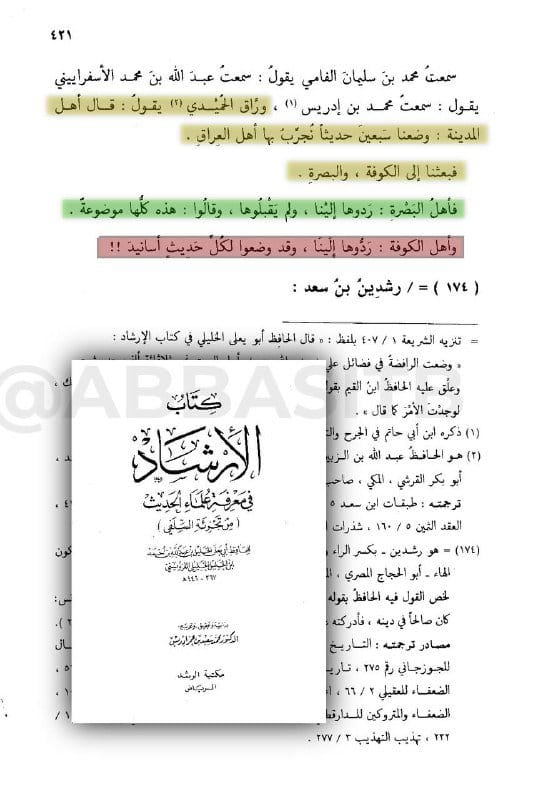 ٤٢١
سمعتُ محمد بنَ سليمانَ الفامي يقولُ : سمعتُ عبدَ الله بنَ محمد الأسفراييني
يقول : سمعتُ محمـد بن إدريس (١) ، ورَّاق الحُمَيْـدي (٢) يقولُ : قـال أهـل
المدينة : وضعنا سَبعينَ حديثاً نُجرِّبُ بها أهل العِراقِ .
فبعثنا إلى الكوفة ، والبصرةِ .
فأهلُ البَصْرةِ : رَدوها إليْنا ، ولم يَقْبلُوها ، وقالُوا : هذه كلُّها موضوعةٌ .
وأهل الكوفة : رَدُّوها إلَينَا ، وقد وضعوا لكُلِّ حَديثٍ أسانيدَ !!
( ١٧٤ ) = / رِشدِينُ بنُ سعد :
= تنزيه الشريعة ١ / ٤٠٧ بلفظ : « قال الحافظ أبو يعلى الخليلي في كتاب الإرشاد :
« وضعت الرافضة في فضائل علي
وعلّق عليه الحافظُ ابنُ القيم بقوله
لوجدتَ الأمْرَ كما قال » .
(١) ذكره ابن أبي حاتم في الجرح والت
(٢) هـو الحـافـظُ عبـد الله بن الـزبير
أبو بكر القرشي ، المكي ، صاحب
ترجمته : طبقات ابن سعد ٥
العقد الثمين ٥ / ١٦٠ ، شذرات
(١٧٤) = هو رشدين - بكسر الراء و
الهاء - أبو الحجاج المصري ،
لخص القول فيه الحافظُ بقوله
كان صالحاً في دينه ، فأدركته
مصادر ترجمته : التاريخ
للجوزجاني رقم ٢٧٥ ، تاريخ
الضعفاء للعقيلي ٢ / ٦٦ ،
الضعفاء والمتروكين للدارقطني
٢٣٢ ، تهذيب التهذيب ٣ / ٢٧٧ .
كِتَابُ
الإرشَاد
في مَعرفَة عُلمَاء الحَديث
( مِن تَجزئَة السِّلَفِي )
٣٦٧ - ٤٤٦ هـ
دراسة وتحقيق وتخريج
الدكتور محمد سعيد بن عمر إدريس
مكتبة الرشد
الرياض